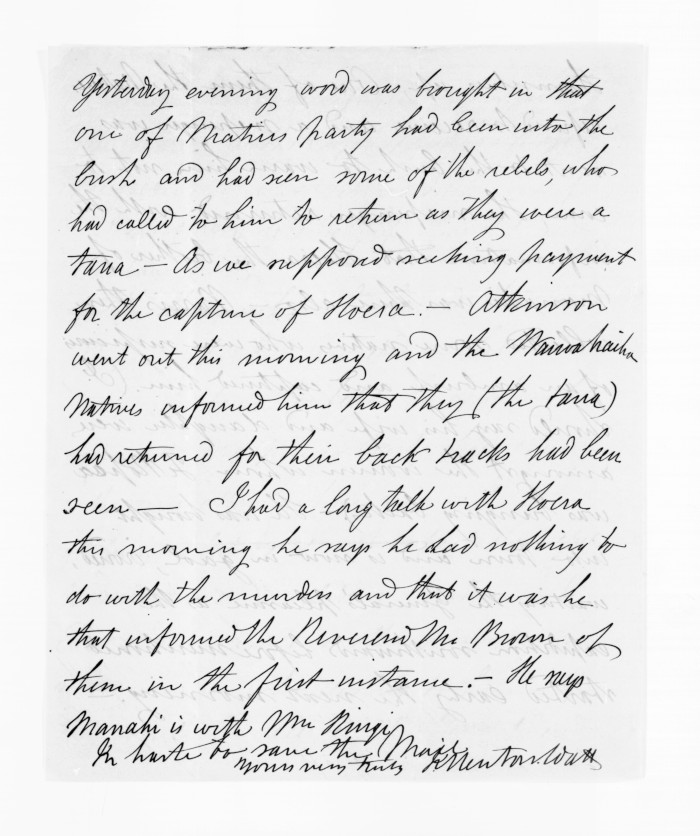 Yesterday evening word was brought in that
one of Matius party had been into the
bush and had seen some of the rebels, who
had called to him to return as they were a
taua — As we supposed seeking payment
for the capture of Hoera. — Atkinson
went out this morning and the Waiwakaiho
Natives informed him that they (the taua)
had returned for their back tracks had been
seen — I had a long talk with Hoera
this morning he says he had nothing to
do with the murders and that it was he
that informed the Reverend Mr Brown of
them in the first instance. — He says
Manahi is with Wm Kingi
In haste to save the Mail
Yours very truly